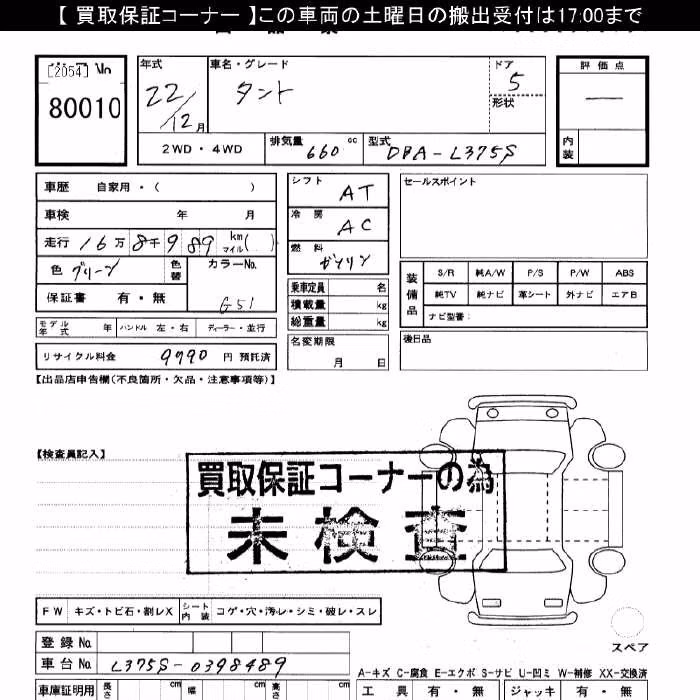 【 買取保証コーナー 】この車両の土曜日の搬出受付は17:00まで
[2054] No
80010
年式
22/12月
車名・グレード
タント
ドア
5
形状
評価点
―
内装
2WD・4WD
排気量 660 cc
型式 DBA-L375S
車歴 自家用・( )
車検 年 月
走行 16万8千989 km マイル( )
色 グリーン
色替
カラーNo.
G51
保証書 有・無
モデル年式 年 ハンドル 左・右 ディーラー・並行
リサイクル料金 9790 円 預託済
シフト AT
冷房 AC
燃料 ガソリン
乗車定員 名
積載量 kg
総重量 kg
名変期限
月 日
セールスポイント
装備品
S/R 純A/W P/S P/W ABS
純TV 純ナビ 革シート 外ナビ エアB
ナビ型番:
後日品
【出品店申告欄(不良箇所・欠品・注意事項等)】
【検査員記入】
買取保証コーナーの為
未検査
FW キズ・トビ石・割レX シート内装 コゲ・穴・汚レ・シミ・破レ・スレ
スペア
登録 No.
車台 No. L375S-0398489
A-キズ C-腐食 E-エクボ S-サビ U-凹ミ W-補修 XX-交換済
車庫証明用 長さ cm 幅 cm 高さ cm
工具 有・無 ジャッキ 有・無